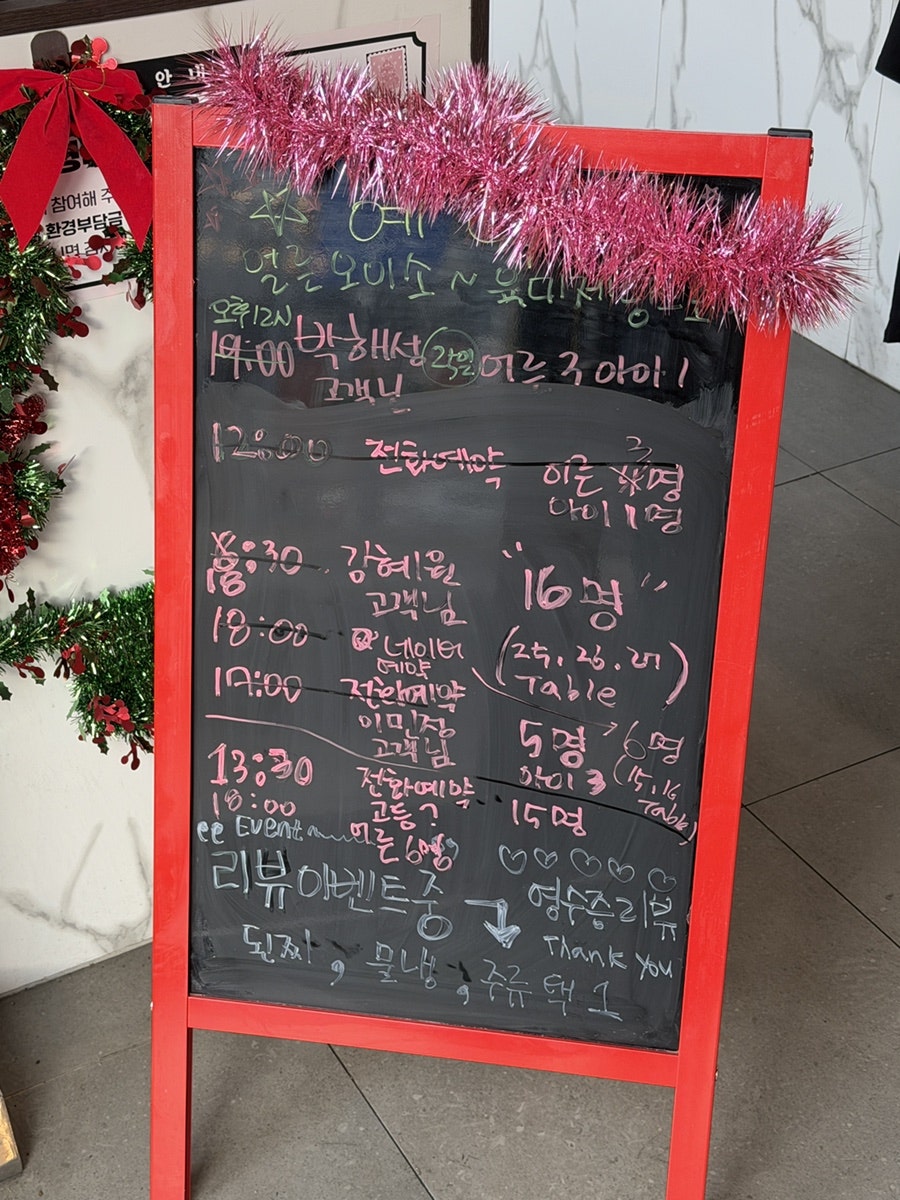 안 내
참여해 주
환경부담금
예
얼른 오이소~
오후 12시
19:00 박해성 고객님 어른 7 아이 1
12:00 전화예약 어른 3명
아이 1명
18:30 강혜원
고객님
"16명"
18:00 네이버
예약
(25, 26, 27)
Table
17:00 전화예약
이민정
고객님
5명 → 6명
아이 3 (15, 16
Table)
13:30 전화예약
18:00 고등?
어른 6명
15명
ee Event
리뷰이벤트중 → 영수증리뷰
Thank you
된찌, 물냉, 주류 택 1